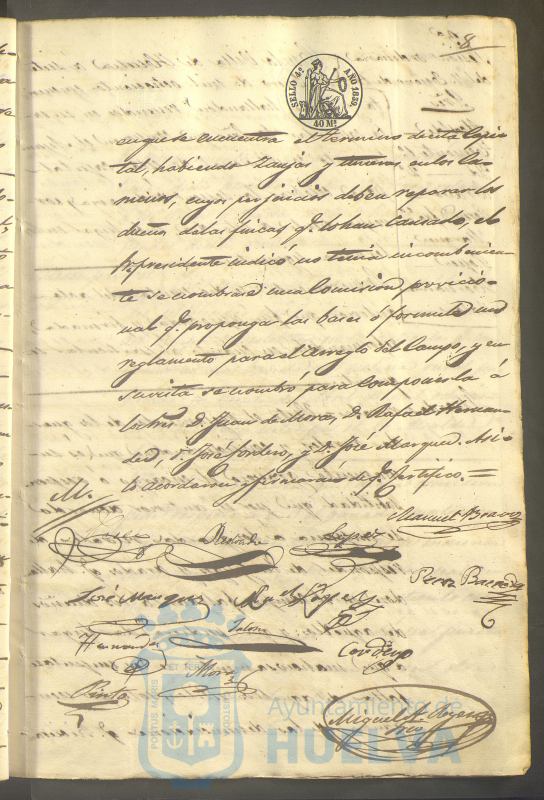 8
SELLO 4º AÑO 1859.
40 Ms.
en que se encuentra el termino de esta Capi-
tal, habiendo Zanjas y tuneras en los Ca-
minos, cuyos perjuicios deben reparar los
dueños de las fincas q.e lo han Causado, el
Sr. presidente indicó no tenia inconbenien-
te se nombrase una Comision provicio-
nal q.e propongan las bases ó formule un
reglamento para el Arreglo del Campo, y en
su vista se nombró para Componerla á
los Sres. D. Juan de Mora, D. Rafael Hernan-
dez, D. José Cordero, y D. José Marquez. Asi
lo acordaron y firmaron de q.e Certifico.=
M.
Manuel Bravo
Lopez
José Marquez Man.l Lopez
Hernandez
Cordero
Pinto Mora
PORTUS MARIS ET TERRAE CUSTODIA
Ayuntamiento de
HUELVA